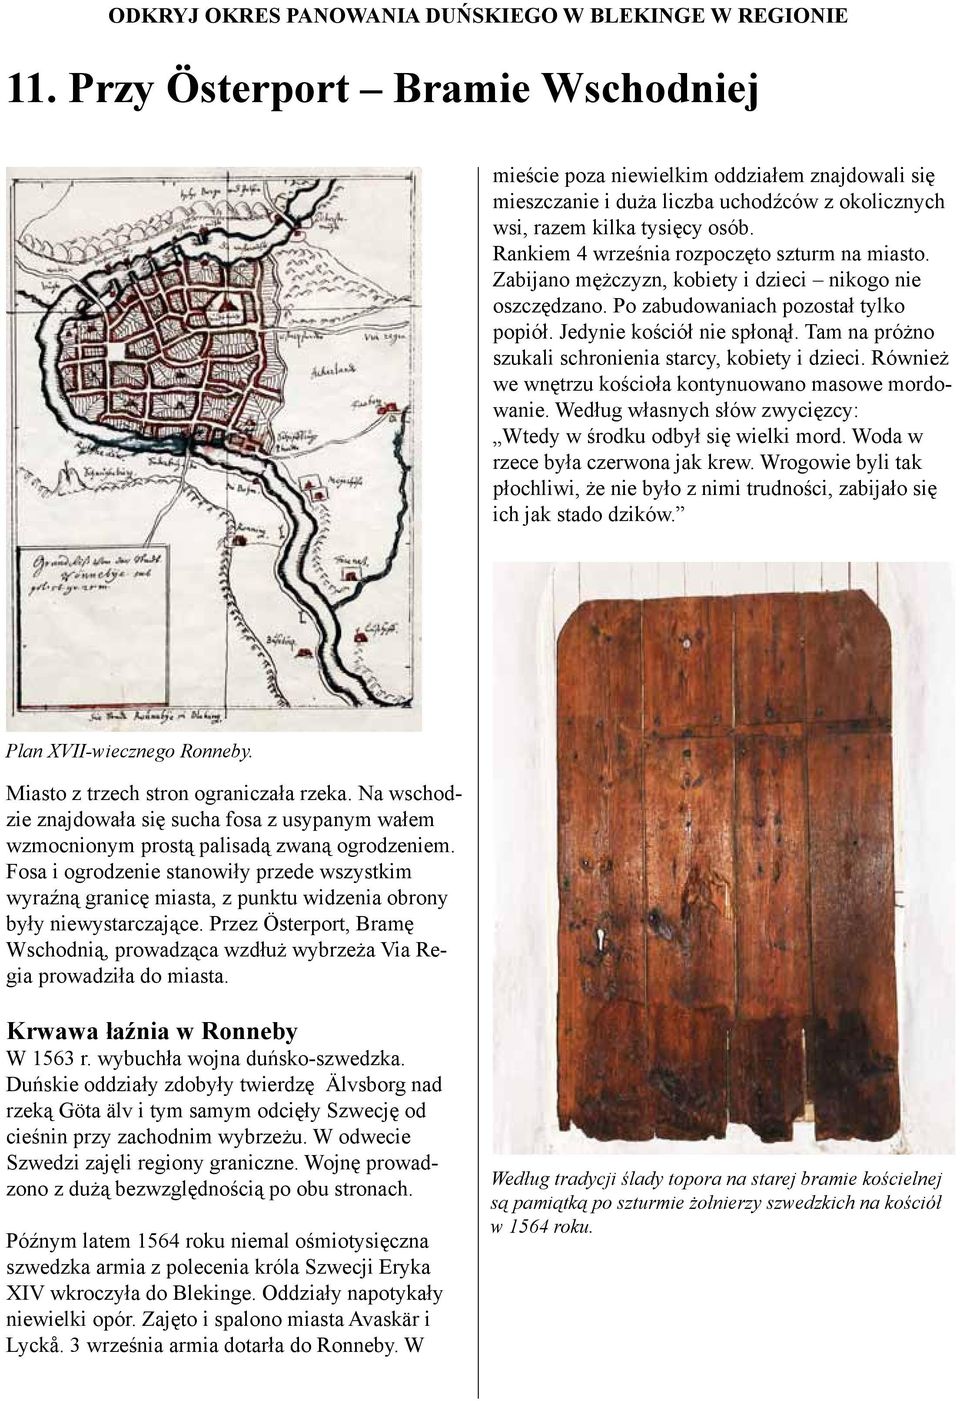 ODKRYJ OKRES PANOWANIA DUŃSKIEGO W BLEKINGE W REGIONIE
11. Przy Österport – Bramie Wschodniej
Via regia
Ackerlandt
Plan XVII-wiecznego Ronneby.
Miasto z trzech stron ograniczała rzeka. Na wschod-
zie znajdowała się sucha fosa z usypanym wałem
wzmocnionym prostą palisadą zwaną ogrodzeniem.
Fosa i ogrodzenie stanowiły przede wszystkim
wyraźną granicę miasta, z punktu widzenia obrony
były niewystarczające. Przez Österport, Bramę
Wschodnią, prowadząca wzdłuż wybrzeża Via Re-
gia prowadziła do miasta.
Krwawa łaźnia w Ronneby
W 1563 r. wybuchła wojna duńsko-szwedzka.
Duńskie oddziały zdobyły twierdzę Älvsborg nad
rzeką Göta älv i tym samym odcięły Szwecję od
cieśnin przy zachodnim wybrzeżu. W odwecie
Szwedzi zajęli regiony graniczne. Wojnę prowad-
zono z dużą bezwzględnością po obu stronach.
Późnym latem 1564 roku niemal ośmiotysięczna
szwedzka armia z polecenia króla Szwecji Eryka
XIV wkroczyła do Blekinge. Oddziały napotykały
niewielki opór. Zajęto i spalono miasta Avaskär i
Lyckå. 3 września armia dotarła do Ronneby. W
mieście poza niewielkim oddziałem znajdowali się
mieszczanie i duża liczba uchodźców z okolicznych
wsi, razem kilka tysięcy osób.
Rankiem 4 września rozpoczęto szturm na miasto.
Zabijano mężczyzn, kobiety i dzieci – nikogo nie
oszczędzano. Po zabudowaniach pozostał tylko
popiół. Jedynie kościół nie spłonął. Tam na próżno
szukali schronienia starcy, kobiety i dzieci. Również
we wnętrzu kościoła kontynuowano masowe mordo-
wanie. Według własnych słów zwycięzcy:
„Wtedy w środku odbył się wielki mord. Woda w
rzece była czerwona jak krew. Wrogowie byli tak
płochliwi, że nie było z nimi trudności, zabijało się
ich jak stado dzików.”
Według tradycji ślady topora na starej bramie kościelnej
są pamiątką po szturmie żołnierzy szwedzkich na kościół
w 1564 roku.